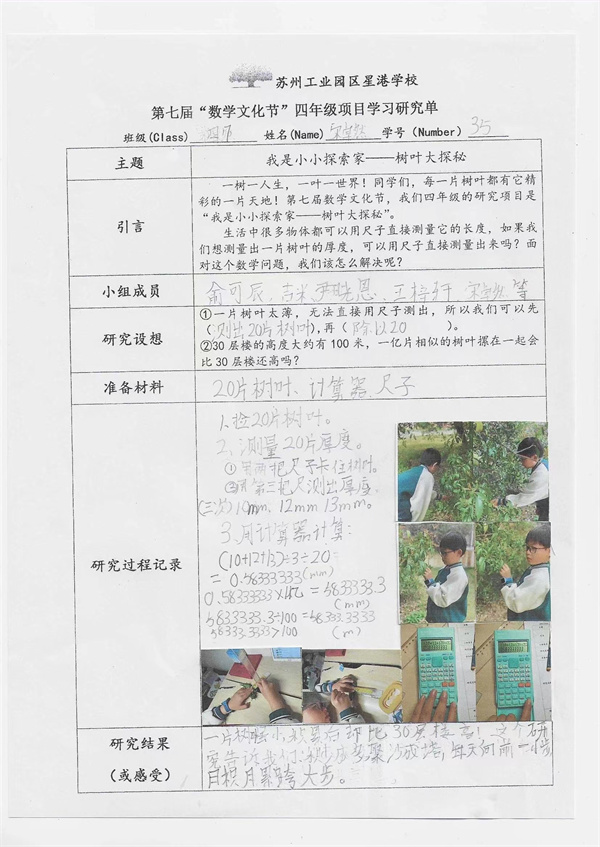 苏州工业园区星港学校
第七届“数学文化节”四年级项目学习研究单
班级(Class) 四 姓名(Name) 学号 (Number) 35
主题
我是小小探索家——树叶大探秘
引言
一树一人生，一叶一世界！同学们，每一片树叶都有它精
彩的一片天地！第七届数学文化节，我们四年级的研究项目是
“我是小小探索家——树叶大探秘”。
生活中很多物体都可以用尺子直接测量它的长度，如果我
们想测量出一片树叶的厚度，可以用尺子直接测量出来吗？面
对这个数学问题，我们该怎么解决呢？
小组成员
俞可辰、吉米、尹晓恩、王梓轩、 等
研究设想
①一片树叶太薄，无法直接用尺子测出，所以我们可以先
（测出20片树叶），再（除以20）。
②30层楼的高度大约有100米，一亿片相似的树叶摞在一起会
比30层楼还高吗？
准备材料
20片树叶、计算器、尺子
研究过程记录
1、捡20片树叶。
2、测量20片厚度。
①用两把尺子卡住树叶。
②用第三把尺测出厚度。
(三次) 10mm，12mm 13mm。
3、用计算器计算：
(10+12+13)÷3÷20
= 0.58333333 (mm)
0.58333333×1亿 = 58333333.3
(mm)
5833333.3÷100 = 58333.3333
58333.3333>100 (m)
研究结果
（或感受）
一片树叶小，数量后却比30层楼高！这个研
究告诉我们 聚沙成塔，每天向前一小步
月积月累跨大步。